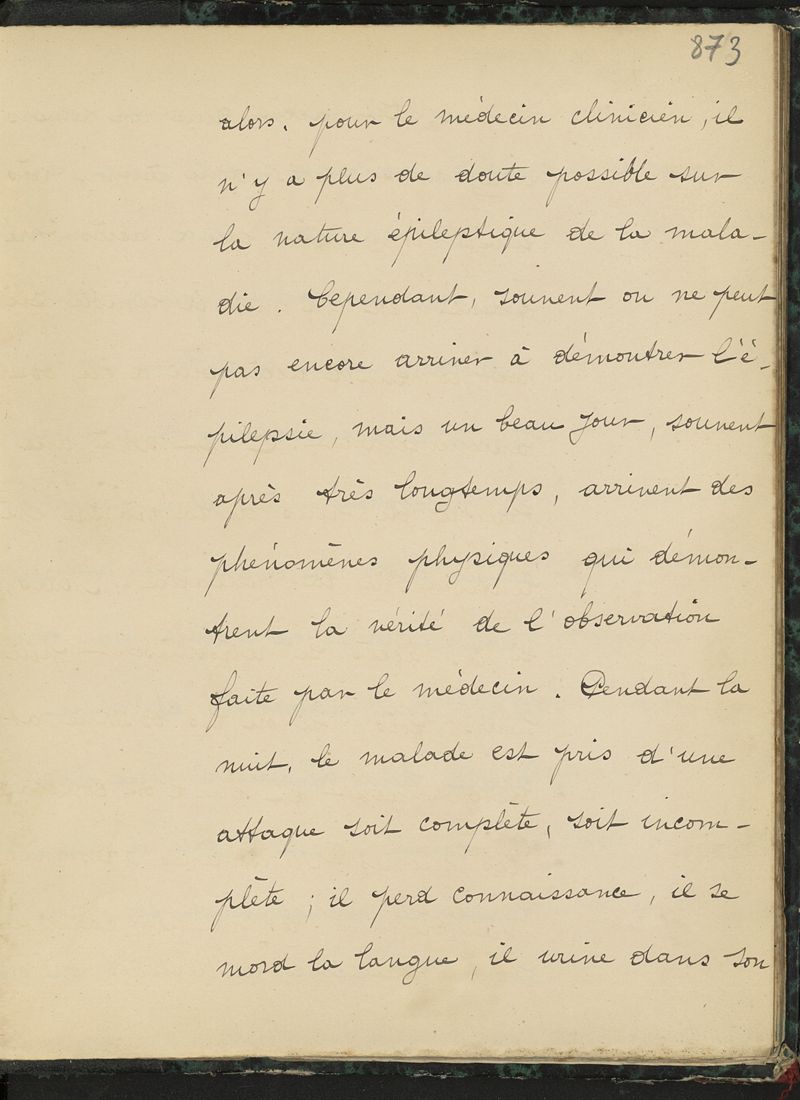 873
alors. pour le médecin clinicien, il
n'y a plus de doute possible sur
la nature épileptique de la mala-
die. Cependant, souvent on ne peut
pas encore arriver à démontrer l'é-
pilepsie, mais un beau jour, souvent
après très longtemps, arrivent des
phénomènes physiques qui démon-
trent la vérité de l'observation
faite par le médecin. Pendant la
nuit, le malade est pris d'une
attaque soit complète, soit incom-
plète; il perd connaissance, il se
mord la langue, il urine dans son